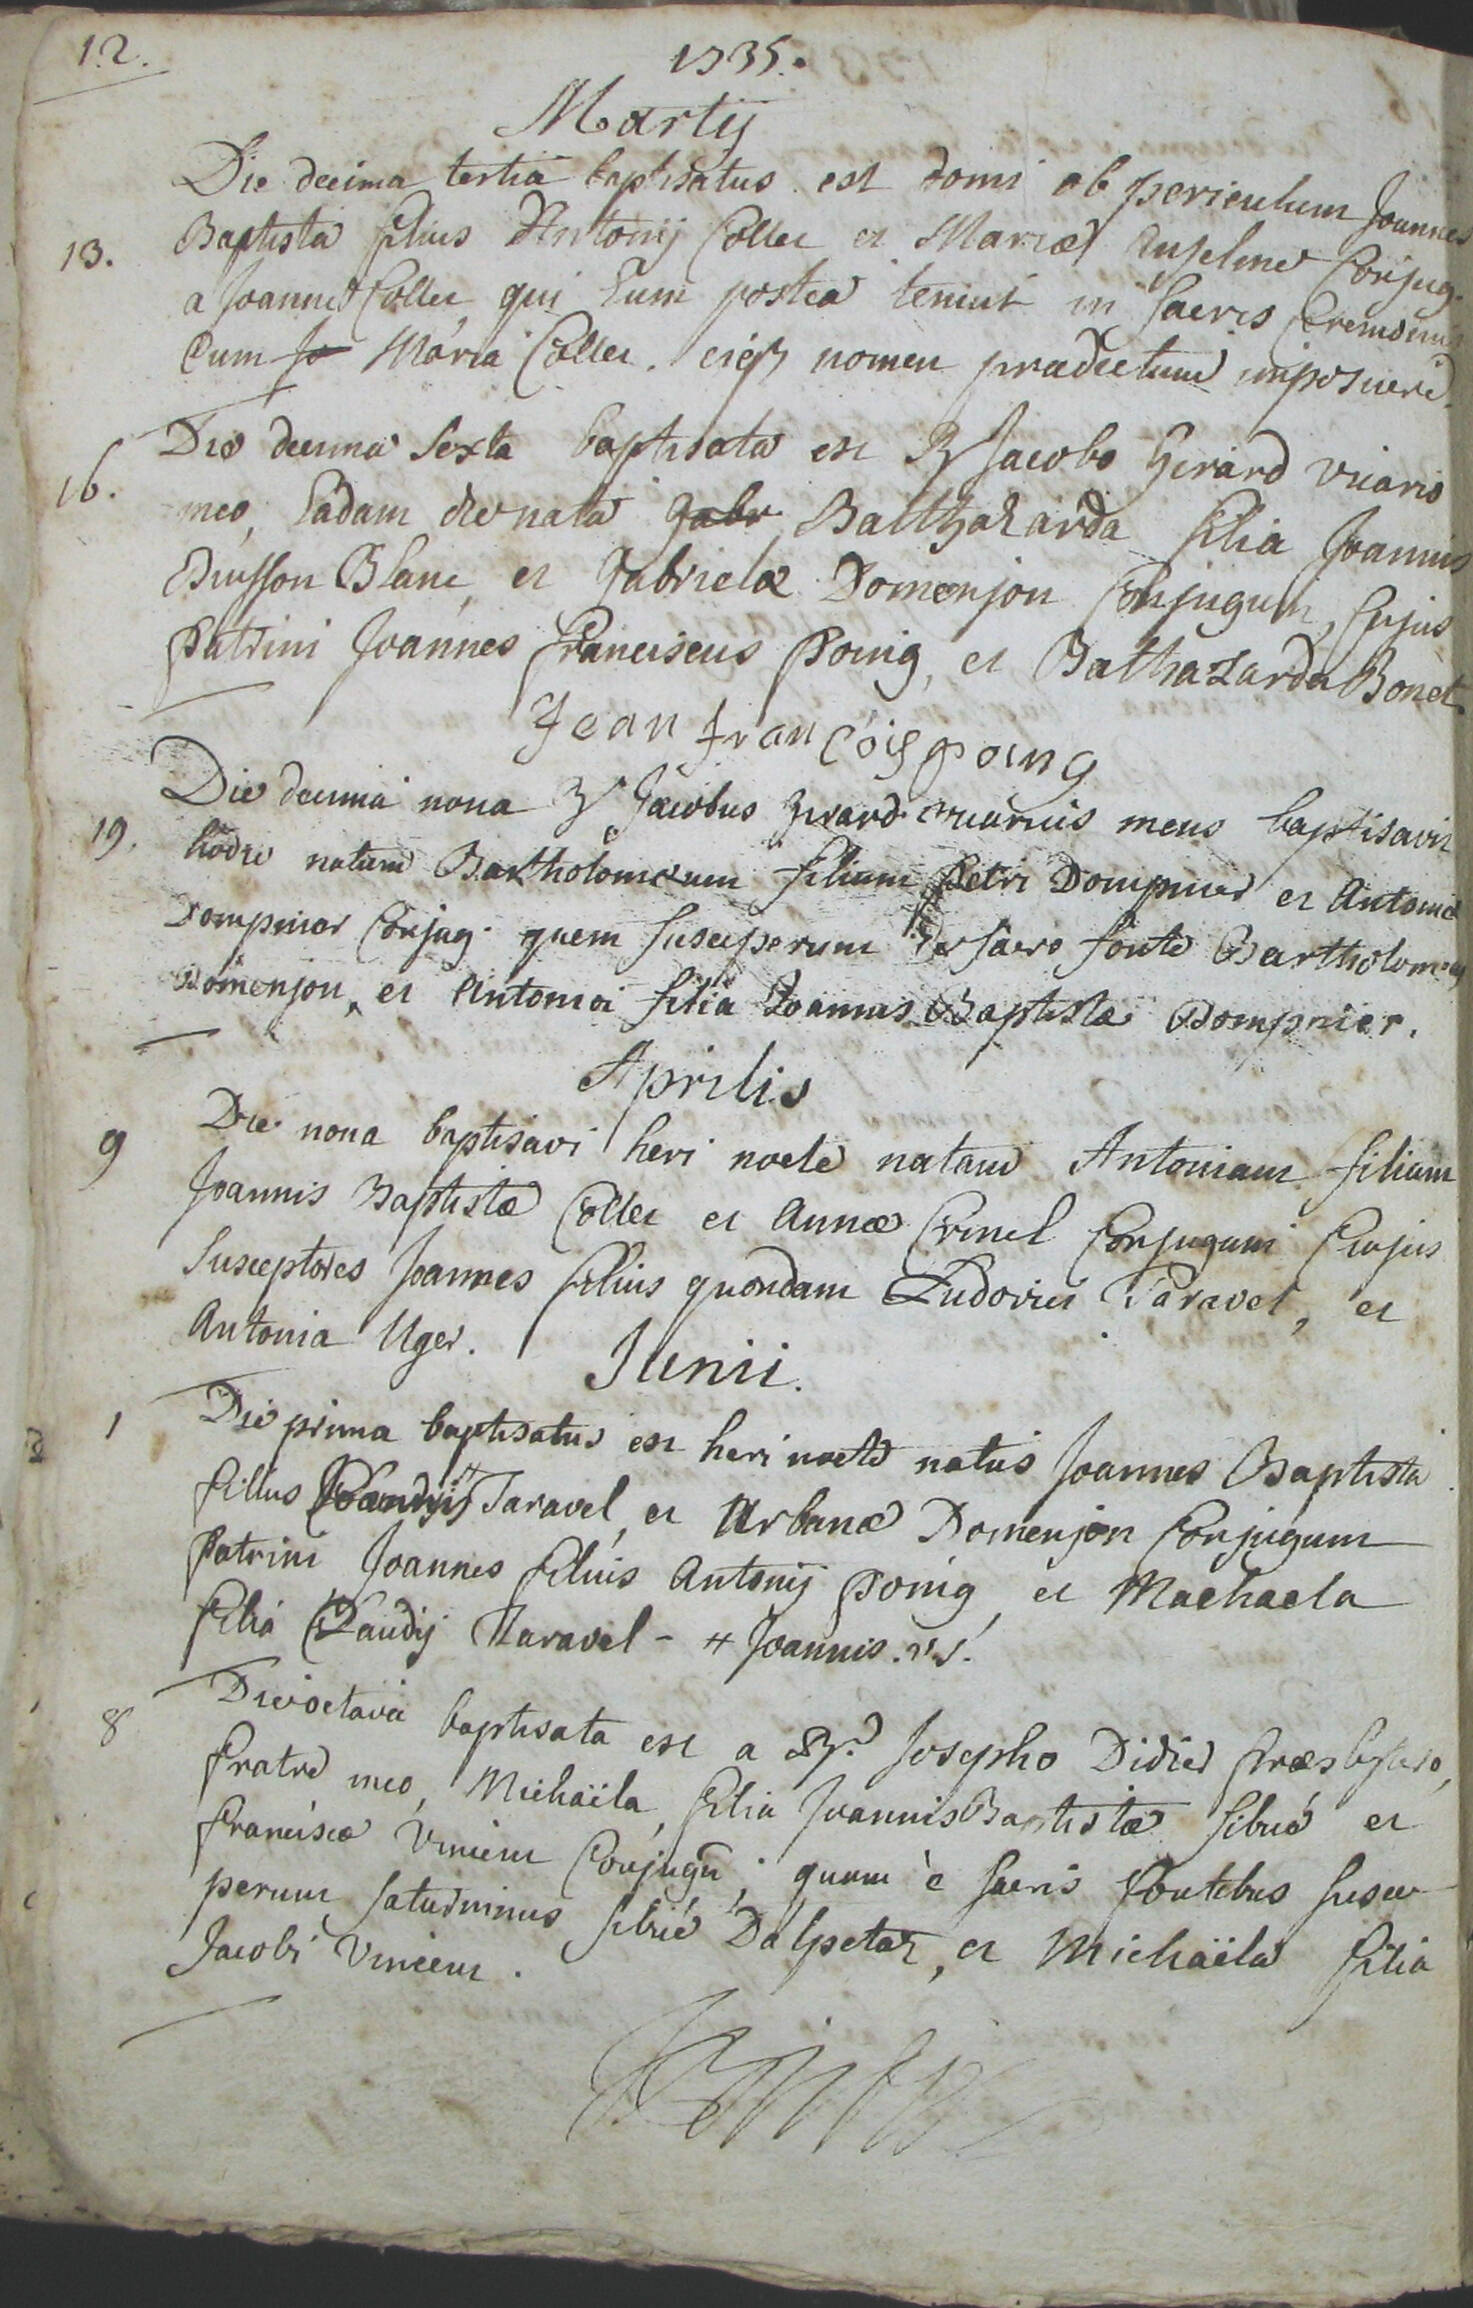 12.
1735.
Martij
Die decima tertia baptisatus est domi ob periculum Joannes
13. Baptista filius Antonij Collet et Mariæ Anselme Conjug.
a Joanne Collet qui Eum postea tenuit in Sacris Ceremoniis
Cum Jo Maria Collet. eiq3 nomen prædictum imposuere.
Die decima Sexta baptisata est a Jacobo Girard vicario
16. meo, Eadam die nata Gabr Balthazarda filia Joannis
Buisson Blanc, et Gabrielæ Domenjon Conjugum, Cujus
Patrini Joannes Franciscus Poing, et Balthazarda Bonet.
Jean françois poing
Die decima nona Jacobus Girard vicarius meus baptisavit
19. hodie natum Bartholomæum filium Petri Dompnier et Antoniæ
Dompnier Conjug. quem Susceperunt de Sacro fonte Bartholomeus
Domenjon, et Antonia filia Joannis Baptistæ Dompnier.
Aprilis
9 Die nona baptisavi heri nocte natam Antoniam filiam
Joannis Baptistæ Collet et Annæ Crinel Conjugum Cujus
Susceptores Joannes filius quondam Ludovici Taravel, et
Antonia Uger.
Junii.
1 Die prima baptisatus est heri nocte natus Joannes Baptista
filius # Taravel, et Urbanæ Domenjon Conjugum
Patrini Joannes filius Antonij Poing, et Machaela
filia Claudij Taravel - # Joannis.
8 Die octava baptisata est a Josepho Didier Præsbytero,
fratre meo, Michaëla, filia Joannis Baptistæ Sibué et
Franciscæ Vincent Conjugū; quam è Sacris fontibus susce-
perunt Saturninus Sibué Dalpetaz, et Michaëla filia
Jacobi Vincent.